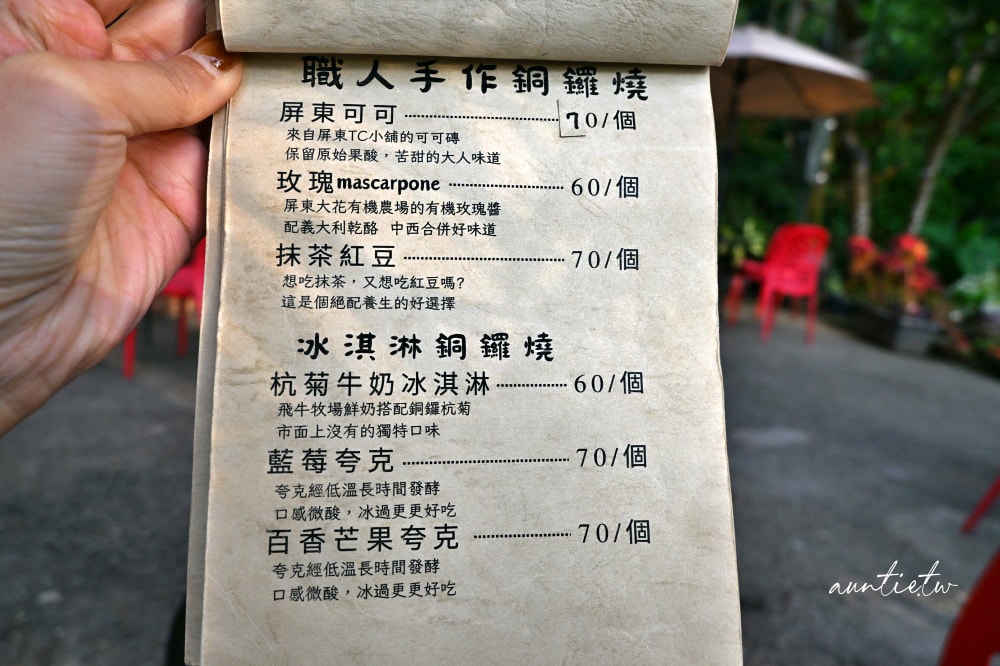 職人手作銅鑼燒
屏東可可 70/個
來自屏東TC小舖的可可磚
保留原始果酸，苦甜的大人味道
玫瑰mascarpone 60/個
屏東大花有機農場的有機玫瑰醬
配義大利乾酪 中西合併好味道
抹茶紅豆 70/個
想吃抹茶，又想吃紅豆嗎?
這是個絕配養生的好選擇
冰淇淋銅鑼燒
杭菊牛奶冰淇淋 60/個
飛牛牧場鮮奶搭配銅鑼杭菊
市面上沒有的獨特口味
藍莓夸克 70/個
夸克經低溫長時間發酵
口感微酸，冰過更更好吃
百香芒果夸克 70/個
夸克經低溫長時間發酵
口感微酸，冰過更更好吃
auntie.tw